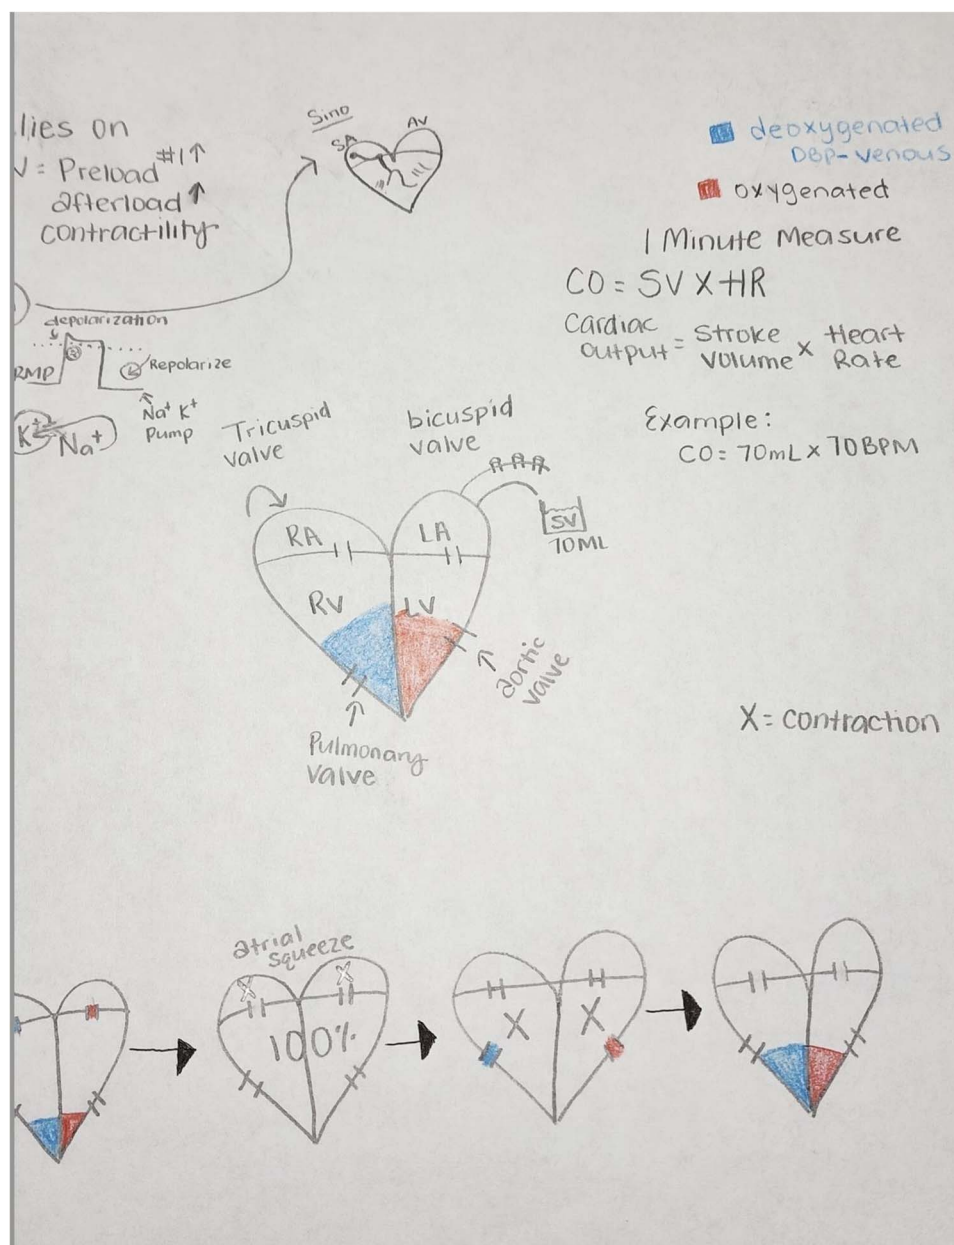 lies on
V = Preload #1↑
afterload ↑
contractility
Sino
SA
AV
deoxygenated
DBP-venous
oxygenated
1 Minute Measure
CO = SV X HR
Cardiac output = Stroke Volume x Heart Rate
Example:
CO = 70mL x 70BPM
depolarization
RMP
Repolarize
K+ Na+
Na+ K+
Pump
Tricuspid
valve
bicuspid
valve
SV
70ML
RA
LA
RV
LV
aortic
valve
Pulmonary
valve
X = contraction
atrial
squeeze
X X
100%
X X